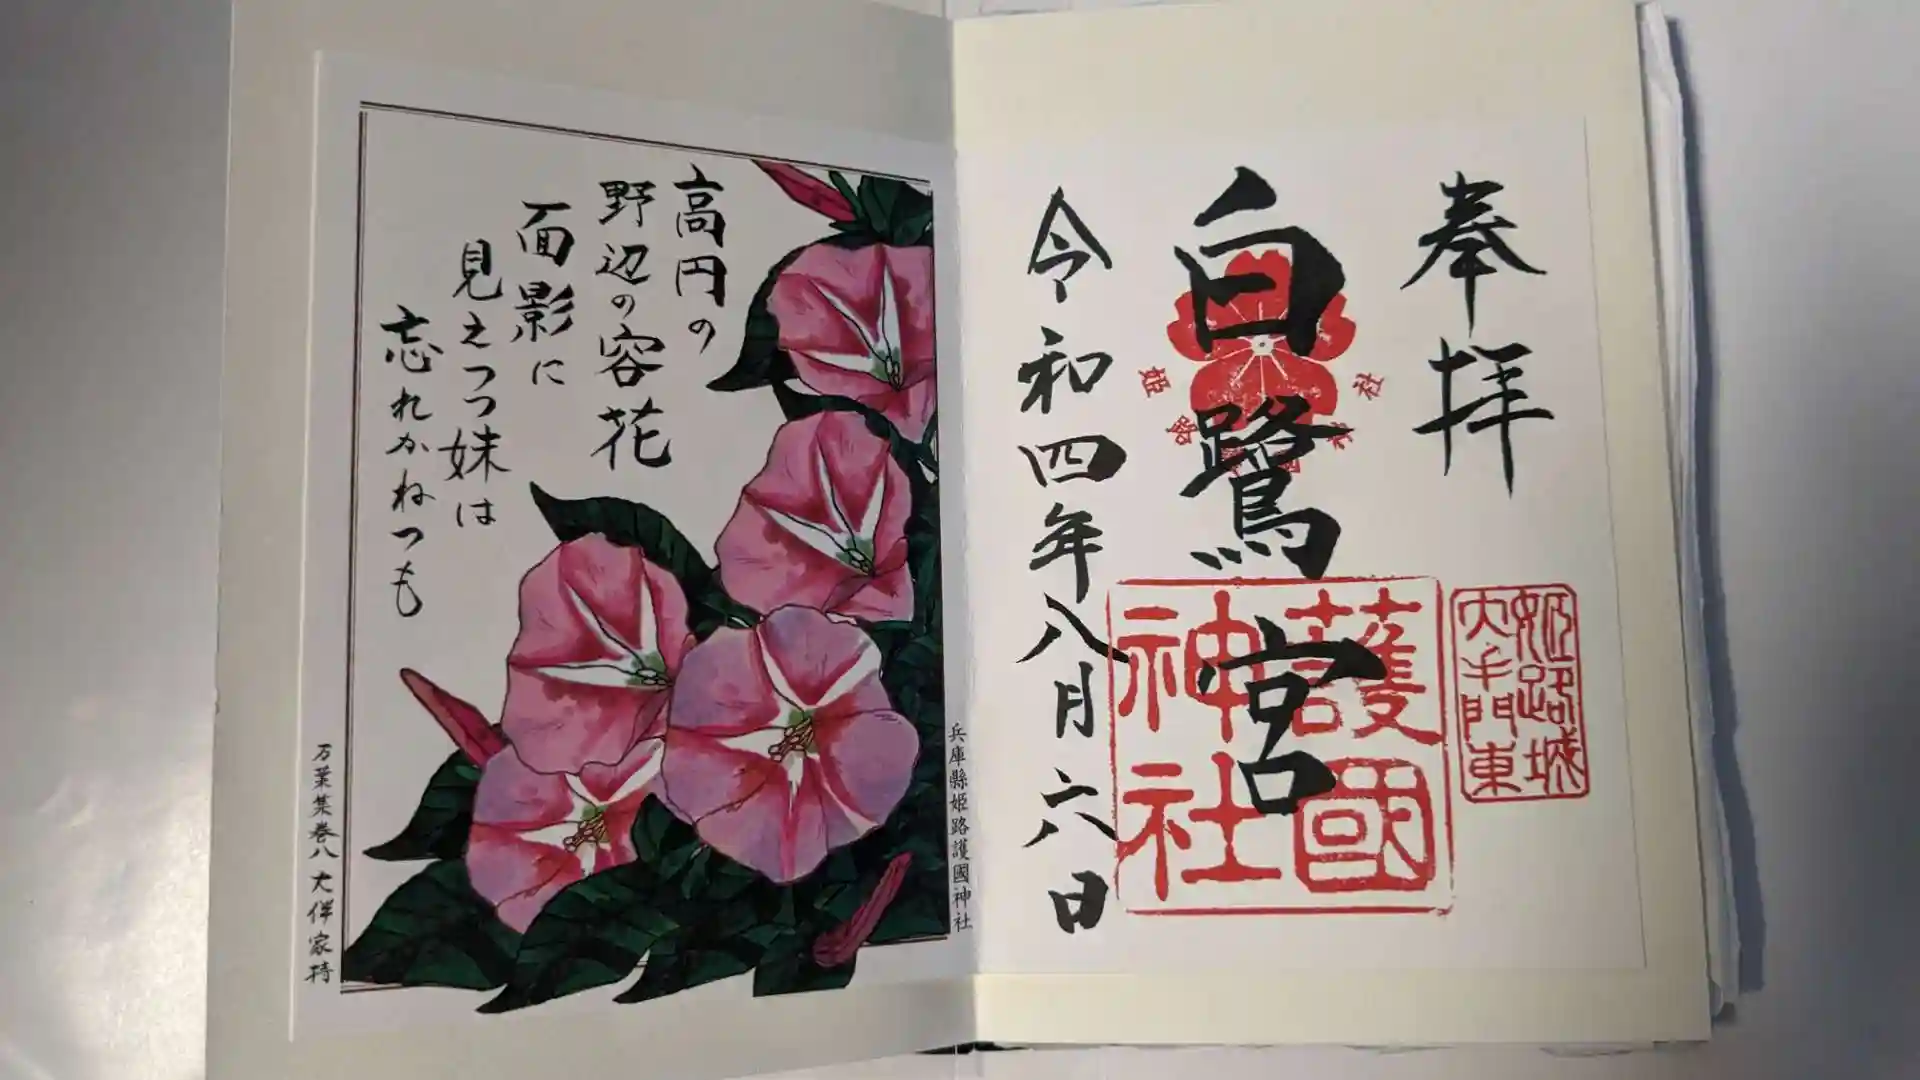 奉拝
白鷺宮
令和四年八月六日
姫路城
大手門東
護國
神社
姫路護國神社
高円の
野辺の容花
面影に
見えつつ妹は
忘れかねつも
兵庫縣姫路護國神社
万葉集巻八大伴家持